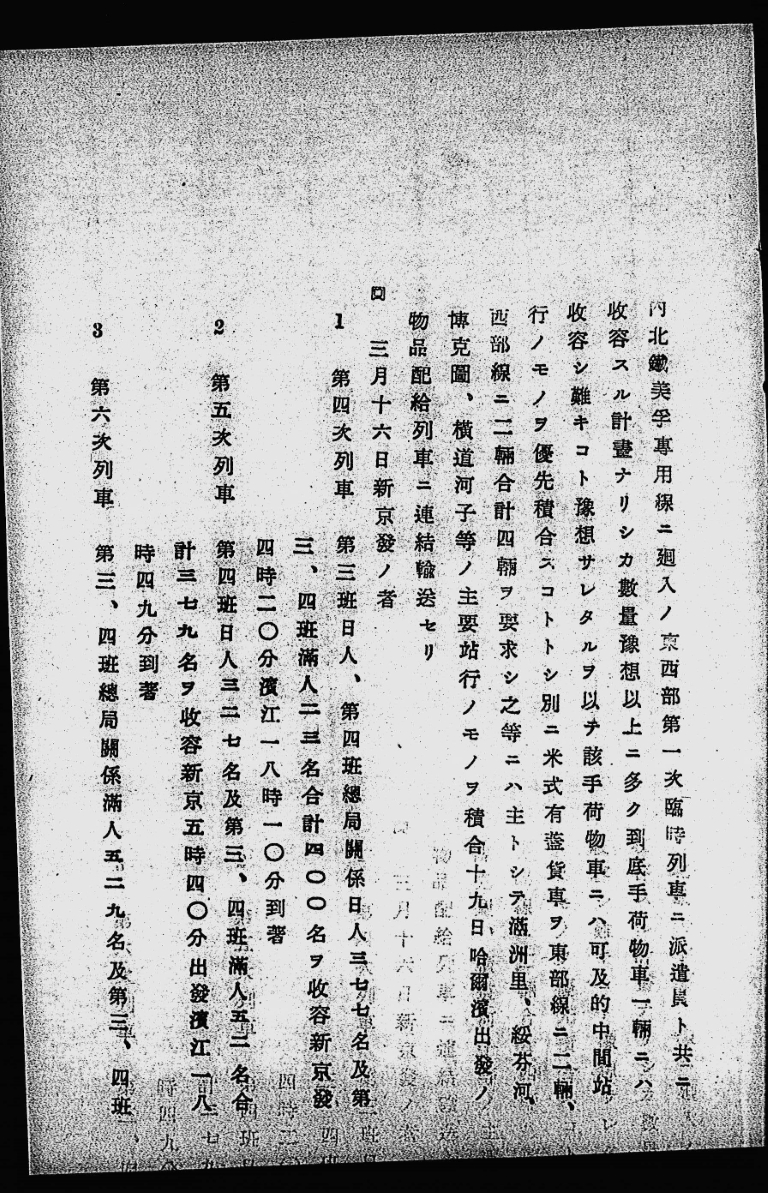 內北鐵美孚專用線ニ廻入ノ東西部第一次臨時列車ニ派遣員ト共ニ
收容スル計畫ナリシカ數量豫想以上ニ多ク到底手荷物車一輛ニハ
收容シ難キコト豫想サレタルヲ以テ該手荷物車ニハ可及的中間站
行ノモノヲ優先積合スコトトシ別ニ米式有蓋貨車ヲ東部線ニ二輛、
西部線ニ二輛合計四輛ヲ要求シ之等ニハ主トシテ滿洲里、綏芬河、
博克圖、橫道河子等ノ主要站行ノモノヲ積合十九日哈爾濱出發ノ
物品配給列車ニ連結輸送セリ
三月十六日新京發ノ者
1 第四次列車 第三班日人、第四班總局關係日人三七七名及第
三、四班滿人二三名合計四〇〇名ヲ收容新京發
四時二〇分濱江一八時一〇分到著
2 第五次列車 第四班日人三二七名及第三、四班滿人五二名合
計三七九名ヲ收容新京五時四〇分出發濱江一八
時四九分到著
3 第六次列車 第三、四班總局關係滿人五二九名及第三、四班